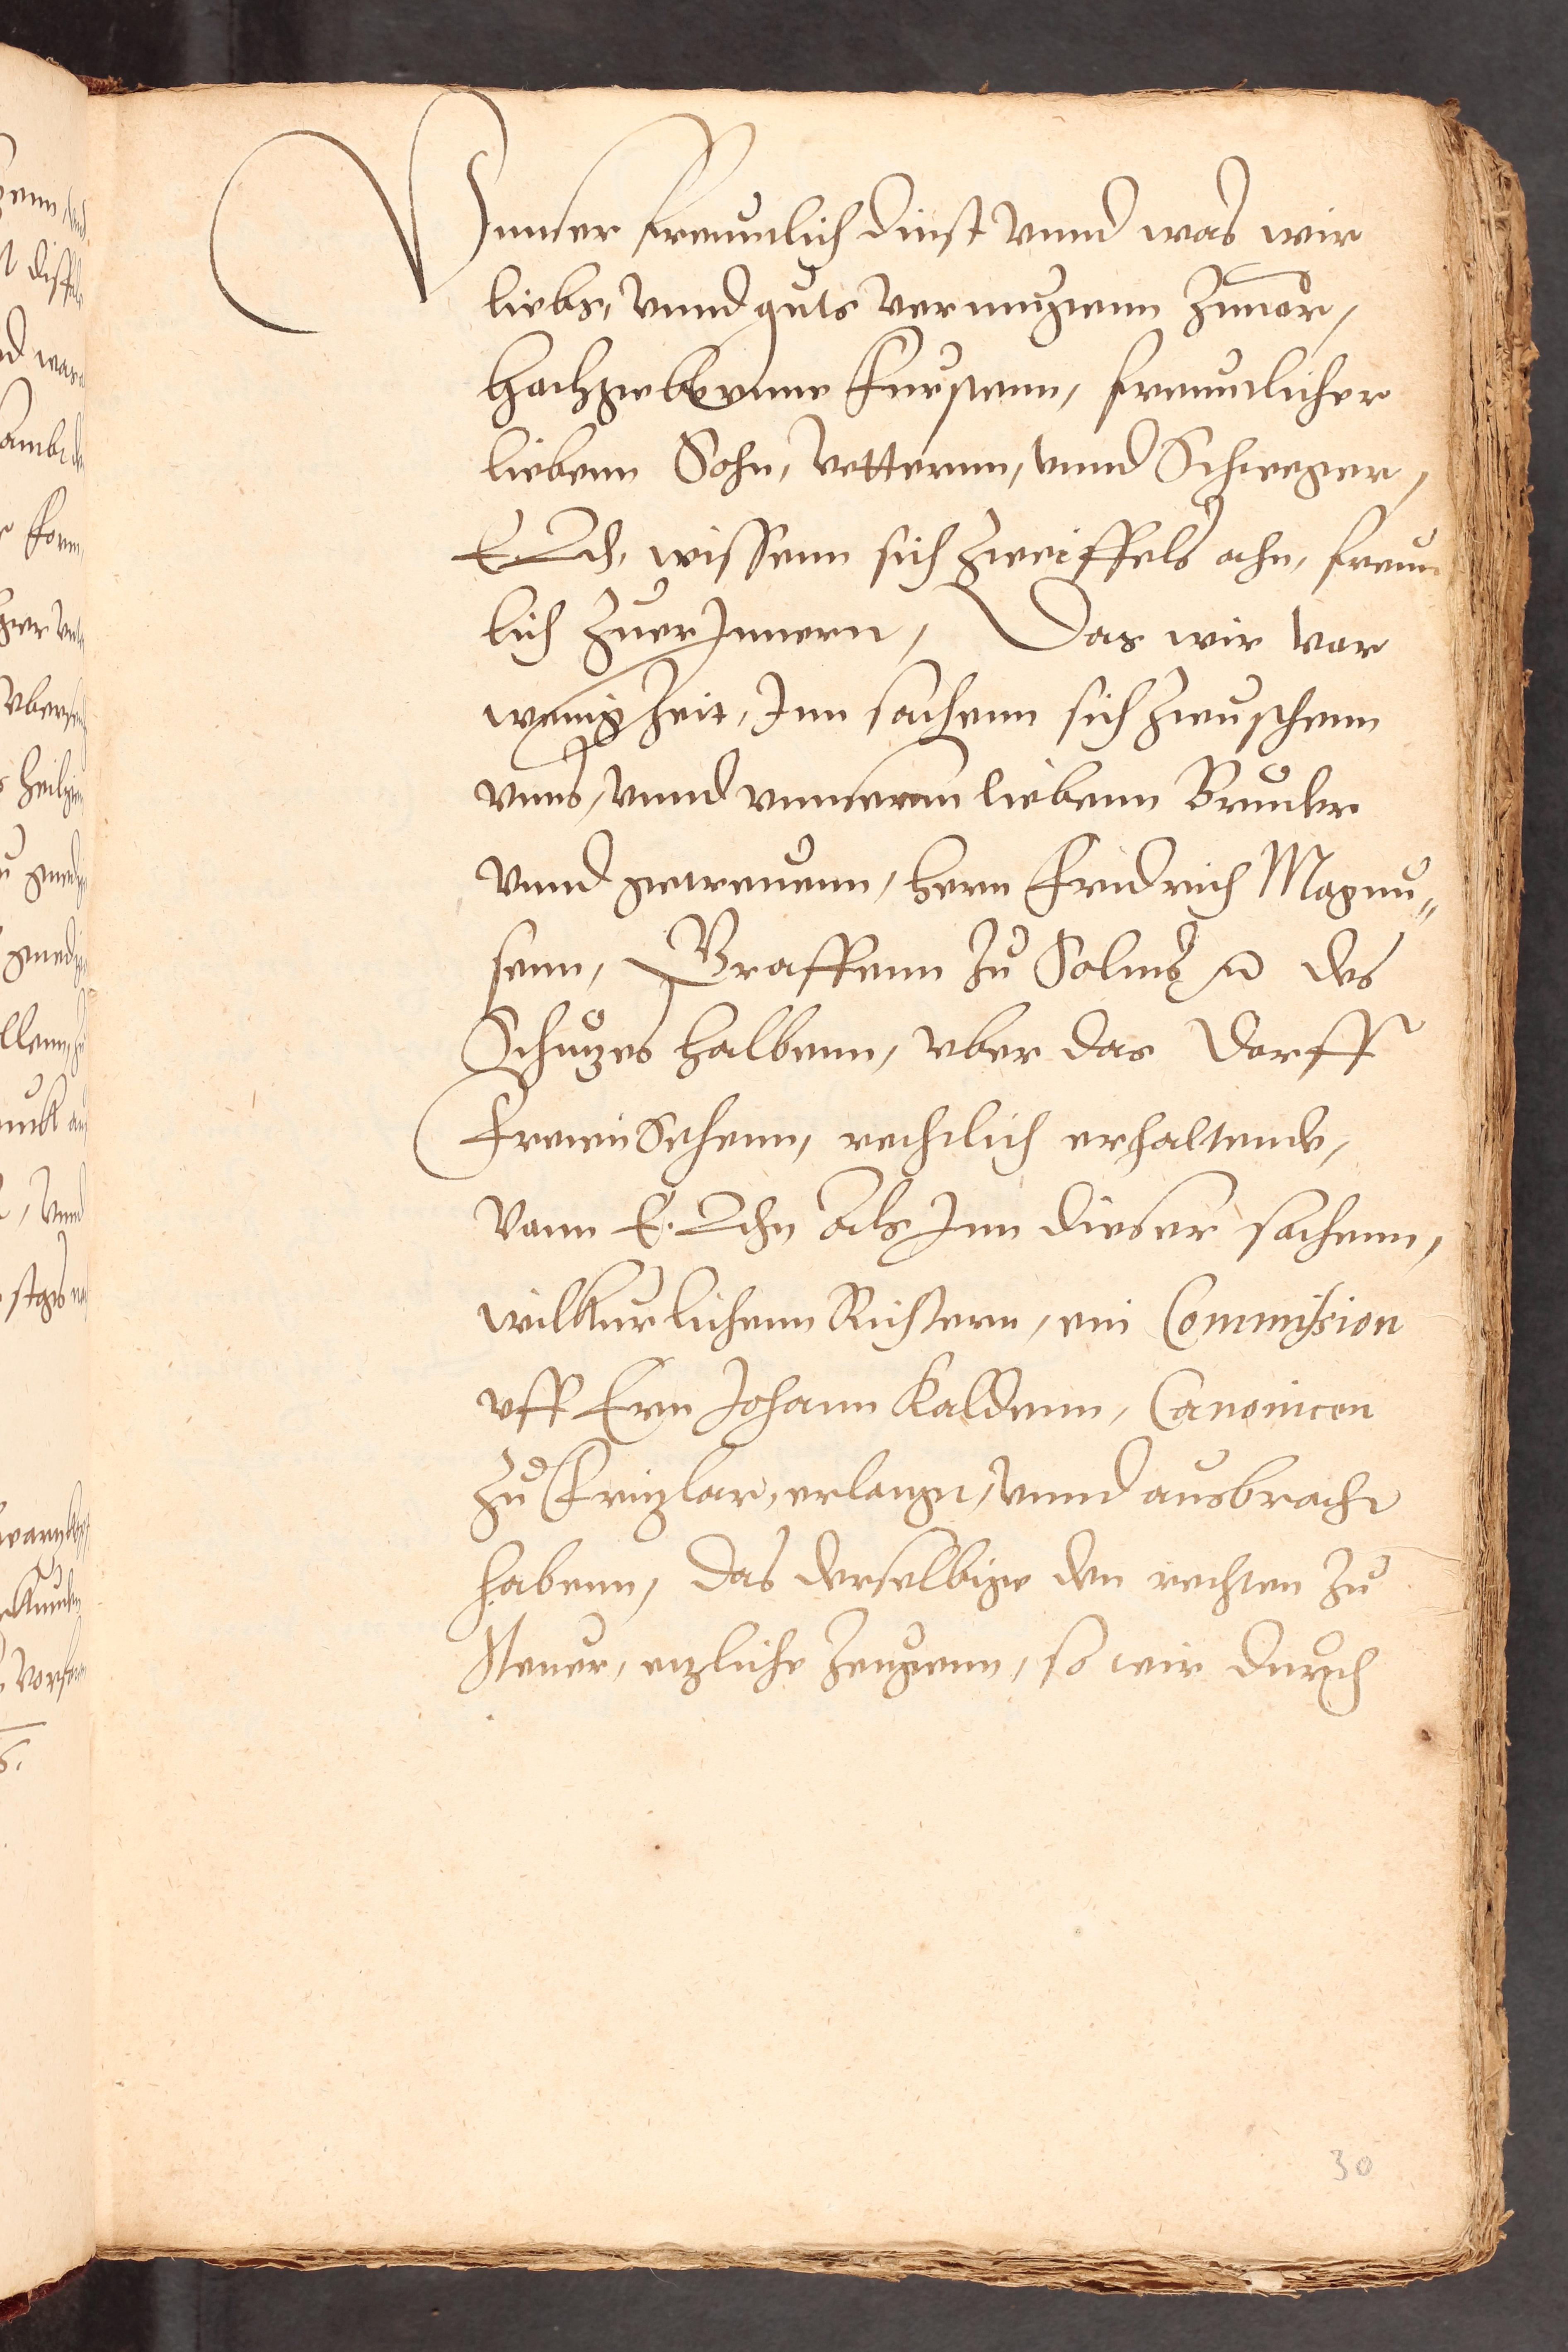 Vnnser freundtlich dinst vnnd was wir
liebs, vnnd guts vermugenn zuuor,
Hochgebornne Furstenn, freundtlicher
liebenn Sohn, Vetternn, vnnd Schweger,
E. Ld. wissenn sich zweiffels ohn, freun
lich zuerJnnern, Das wir vor
wenig Zeit, Jnn sachenn sich zwuschenn
vnns, vnnd vnnserm liebenn Bruder
vnnd getreuenn, hern Fridrich Magnu„
senn, Graffenn zu Solms etc. des
Schutzes halbenn, vber das Dorff
FreienSehenn, rechtlich erhaltende,
Vonn E. Ldn als Jnn dieser sachenn,
wilkurlichenn Richtern, ein Commission
vff Ern Johann Kaldenn, Canonicen
zu Fritzlar, erlangt, vnnd ausbracht
habenn, Das derselbige den rechten zu
Steuer, etzliche Zeugenn, so wir durch
30